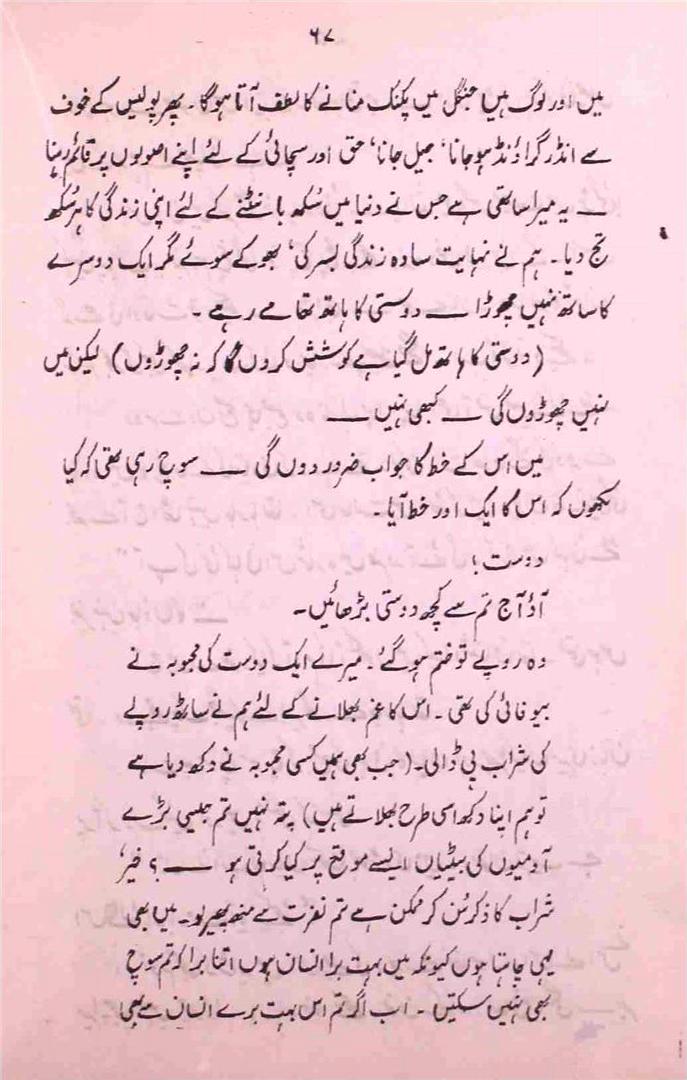 ۶۷
میں اور لوگ ہیں؛ جنگل میں پکنک منانے کا لطف آتا ہوگا۔ پھر پولیس کے خوف
سے انڈر گراؤنڈ ہو جانا، جیل جانا، حق اور سچائی کے لئے اپنے اصولوں پر قائم رہنا
— یہ میرا ساتھی ہے جس نے دنیا میں سُکھ بانٹنے کے لئے اپنی زندگی کا ہر سُکھ
تج دیا۔ ہم نے نہایت سادہ زندگی بسر کی، بھوکے سوئے مگر ایک دوسرے
کا ساتھ نہیں چھوڑا — دوستی کا ہاتھ تھامے رہے۔
(دوستی کا ہاتھ مل گیا ہے کوشش کروں گا کہ نہ چھوڑوں) لیکن میں
نہیں چھوڑوں گی — کبھی نہیں —
میں اس کے خط کا جواب ضرور دوں گی — سوچ رہی تھی کہ کیا
لکھوں کہ اس کا ایک اور خط آیا۔
دوست!
آؤ آج تم سے کچھ دوستی بڑھائیں۔
وہ روپے تو ختم ہو گئے۔ میرے ایک دوست کی محبوبہ نے
بیوفائی کی تھی۔ اس کا غم بھلانے کے لئے ہم نے ساٹھ روپے
کی شراب پی ڈالی۔ (جب بھی ہمیں کسی محبوبہ نے دکھ دیا ہے
تو ہم اپنا دکھ اسی طرح بھلاتے ہیں) پتہ نہیں تم جیسی بڑے
آدمیوں کی بیٹیاں ایسے موقع پر کیا کرتی ہو —؟ خیر،
شراب کا ذکر سُن کر ممکن ہے تم نفرت سے منھ پھیر لو۔ میں بھی
یہی چاہتا ہوں کیونکہ میں بہت برا انسان ہوں اتنا برا کہ تم سوچ
بھی نہیں سکتیں۔ اب اگر تم اس بہت برے انسان سے بھی